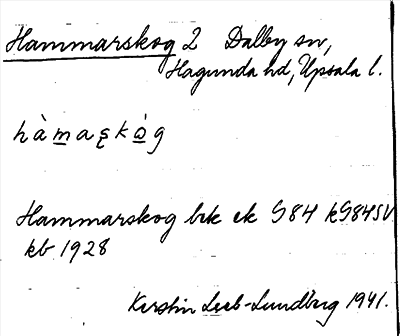 Hammarskog 2 Dalby sn,
Hagunda hd, Upsala l.
hàmaʂkòg
Hammarskog brk ek G84 kG84SV
kb 1928
Kerstin Leeb-Lundberg 1941.